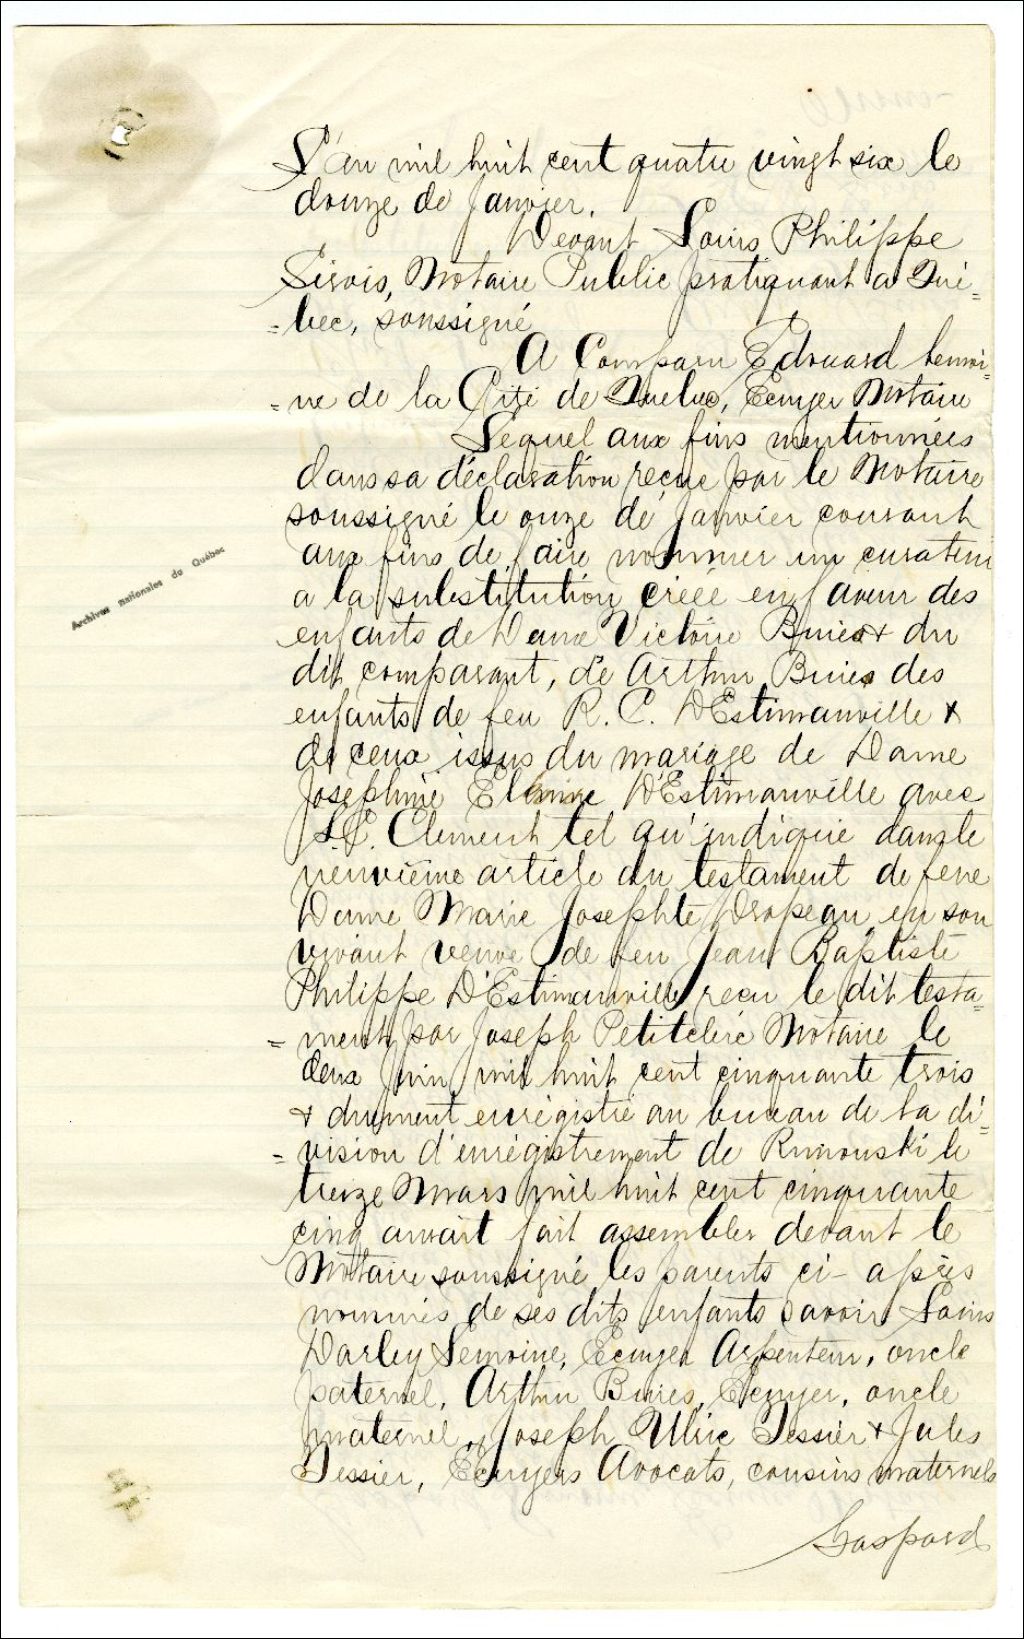 L'an mil huit cent quatre vingt six le
douze de Janvier.
Devant Louis Philippe
Sirois, Notaire Public pratiquant a Qué-
=bec, soussigné
A Comparu Edouard Lemoi-
=ne de la Cité de Quebec, Ecuyer Notaire
Lequel aux fins mentionnées
dans sa déclaration reçue par le Notaire
soussigné le onze de Janvier courant
aux fins de faire nommer un curateur
a la substitution créée en faveur des
enfants de Dame Victoire Buies & du
dit comparant, de Arthur Buies des
enfants de feu R. C. D'Estimauville &
de ceux issus du mariage de Dame
Josephine D'Estimauville avec
L.C. Clement tel qu'indiqué dans le
neuvième article du testament de feue
Dame Marie Josephte Drapeau en son
vivant veuve de feu Jean Baptiste
Philippe D'Estimauville, reçu le dit testa-
=ment par Joseph Petitclerc Notaire le
deux Juin mil huit cent cinquante trois
& dument enrégistré au bureau de la di-
=vision d'enrégistrement de Rimouski le
treize Mars mil huit cent cinquante
cinq aurait fait assembler devant le
Notaire soussigné les parents ci-après
nommés de ses dits enfants savoir Louis
Darley Lemoine, Ecuyer Arpenteur, oncle
paternel, Arthur Buies, Ecuyer, oncle
maternel, Joseph Ulric Tessier & Jules
Tessier, Ecuyers Avocats, cousins maternels
Gaspard
Archives nationales du Québec